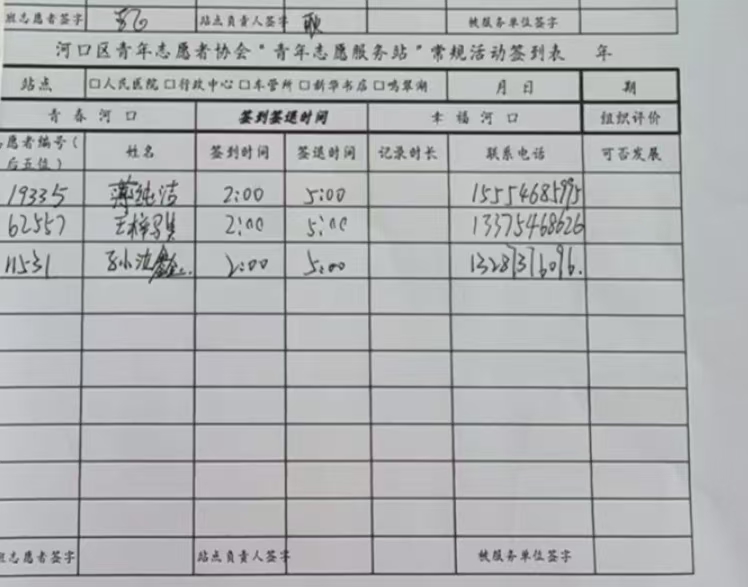 班志愿者签字 站点负责人签字 被服务单位签字
河口区青年志愿者协会“青年志愿服务站”常规活动签到表 年
站点 □人民医院 □行政中心 □车管所 □新华书店 □鸣翠湖 月 日 期
青春河口 签到签退时间 幸福河口 组织评价
愿者编号(后五位) 姓名 签到时间 签退时间 记录时长 联系电话 可否发展
19335 蒋纯洁 2:00 5:00 15554685995
62557 王梓 2:00 5:00 13375468626
11531 2:00 5:00 13287376096.
班志愿者签字 站点负责人签字 被服务单位签字